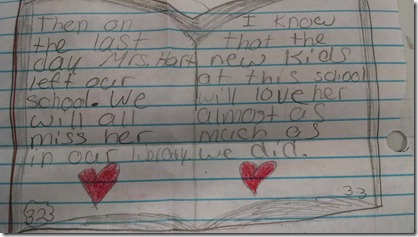 Then on
the last
day Mrs. Hart
left our
school. We
will all
miss her
in our library
323
I know
that the
new kids
at this school
will love her
almost as
much as
we did.
33